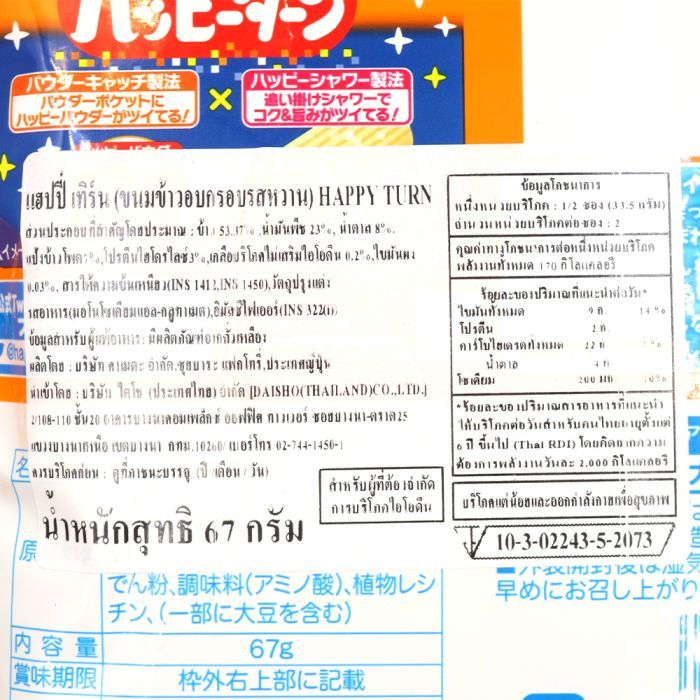 ハッピーターン
パウダーキャッチ製法
パウダーポケットに
ハッピーパウダーがツイてる!
×
ハッピーシャワー製法
追い掛けシャワーで
コク&旨みがツイてる!
แฮปปี้ เทิร์น (ขนมข้าวอบกรอบรสหวาน) HAPPY TURN
ส่วนประกอบที่สำคัญโดยประมาณ : ข้าว 53.37%, น้ำมันพืช 23%, น้ำตาล 8%,
แป้งข้าวโพด 7%, โปรตีนไฮโดรไลซ์ 3%, เกลือบริโภคไม่เสริมไอโอดีน 0.2%, ไขมันผง
0.03%, สารให้ความข้นเหนียว(INS 1412, INS 1450), วัตถุปรุงแต่ง
รสอาหาร(มอโนโซเดียมแอล-กลูทาเมต), อิมัลซิไฟเออร์(INS 322(i))
ข้อมูลสำหรับผู้แพ้อาหาร: มีผลิตภัณฑ์จากถั่วเหลือง
ผลิตโดย : บริษัท คาเมดะ จำกัด, ซุยบาระ แฟคโทรี่, ประเทศญี่ปุ่น
นำเข้าโดย : บริษัท ไดโซ (ประเทศไทย) จำกัด [DAISHO(THAILAND)CO.,LTD.]
2/108-110 ชั้น20 อาคารบางนาคอมเพล็กซ์ ออฟฟิศ ทาวเวอร์ ซอยบางนา-ตราด25
แขวงบางนาเหนือ เขตบางนา กทม.10260/ เบอร์โทร 02-744-1450-1
ควรบริโภคก่อน : ดูที่ภาชนะบรรจุ (ปี /เดือน / วัน)
สำหรับผู้ที่ต้องจำกัด
การบริโภคไอโอดีน
น้ำหนักสุทธิ 67 กรัม
ข้อมูลโภชนาการ
หนึ่งหน่วยบริโภค : 1/2 ซอง (33.5 กรัม)
จำนวนหน่วยบริโภคต่อซอง : 2
คุณค่าทางโภชนาการต่อหนึ่งหน่วยบริโภค
พลังงานทั้งหมด 170 กิโลแคลอรี
ร้อยละของปริมาณที่แนะนำต่อวัน*
ไขมันทั้งหมด 9 ก. 14%
โปรตีน 2 ก.
คาร์โบไฮเดรตทั้งหมด 22 ก
น้ำตาล 4 ก.
โซเดียม 200 มก. 10%
*ร้อยละของปริมาณสารอาหารที่แนะนำ
ให้บริโภคต่อวันสำหรับคนไทยอายุตั้งแต่
6 ปี ขึ้นไป (Thai RDI) โดยคิดจากความ
ต้องการพลังงานวันละ 2,000 กิโลแคลอรี
บริโภคแต่น้อยและออกกำลังกายเพื่อสุขภาพ
10-3-02243-5-2073
でん粉、調味料(アミノ酸)、植物レシ
チン、(一部に大豆を含む)
内容量 67g
賞味期限 枠外右上部に記載
■外装開封後は湿気
早めにお召し上がり